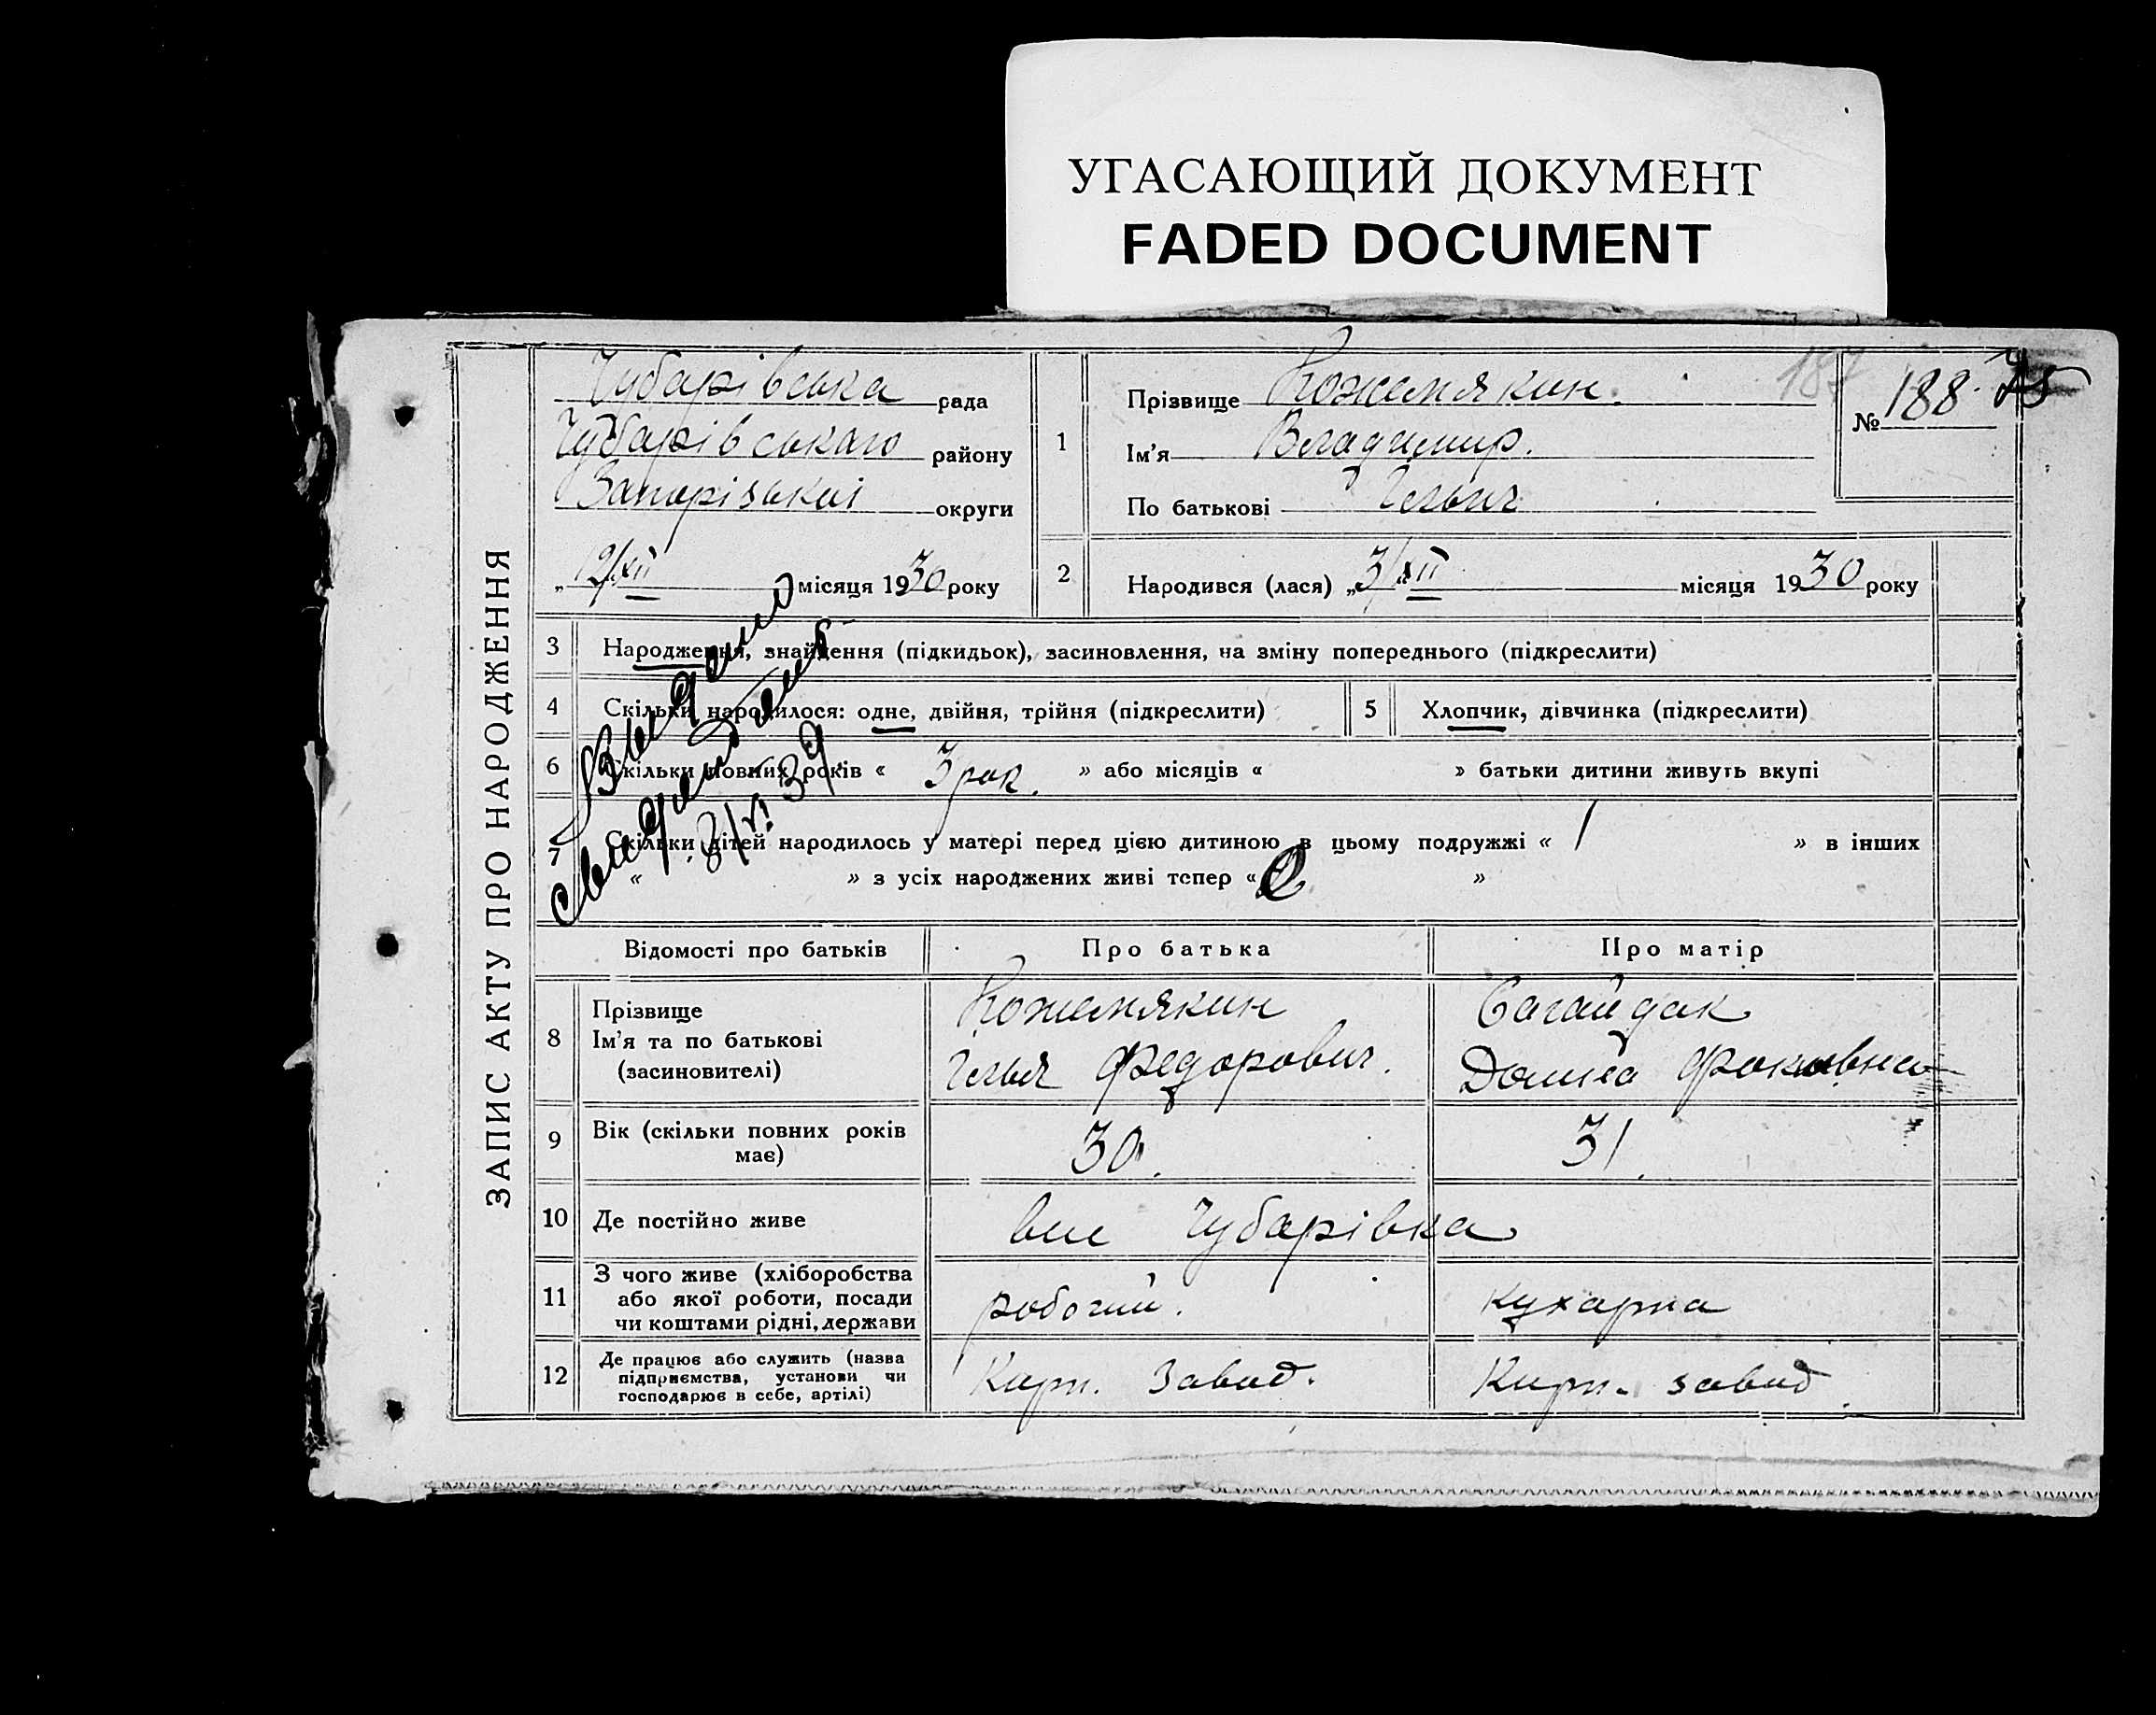 УГАСАЮЩИЙ ДОКУМЕНТ
FADED DOCUMENT
ЗАПИС АКТУ ПРО НАРОДЖЕННЯ
Чубарівська рада
Чубарівського району
Запорізької округи
„12/XII місяця 1930 року
1
Прізвище Кожемякин.
Ім'я Владимир.
По батькові Ільич
187
№ 188. 75
2 Народився (лася) „3/XII місяця 1930 року
3 Народження, знайдення (підкидьок), засиновлення, на зміну попереднього (підкреслити)
4 Скільки народилося: одне, двійня, трійня (підкреслити)
5 Хлопчик, дівчинка (підкреслити)
6 Скільки повних років « 3 рок. » або місяців « » батьки дитини живуть вкупі
7 Скільки дітей народилось у матері перед цією дитиною в цьому подружжі « 1 » в інших
« » з усіх народжених живі тепер « »
Видано
8/VI 39.
Відомості про батьків
Про батька
Про матір
8 Прізвище
Ім'я та по батькові
(засиновителі)
Кожемякин
Ілья Федорович.
Сагайдак
Домна Фоковна
9 Вік (скільки повних років
має)
30.
31.
10 Де постійно живе
Чубарівка
11 З чого живе (хліборобства
або якої роботи, посади
чи коштами рідні, держави
робочий.
кухарка
12 Де працює або служить (назва
підприємства, установи чи
господарює в себе, артілі)
Кирп. завод.
Кирп. завод